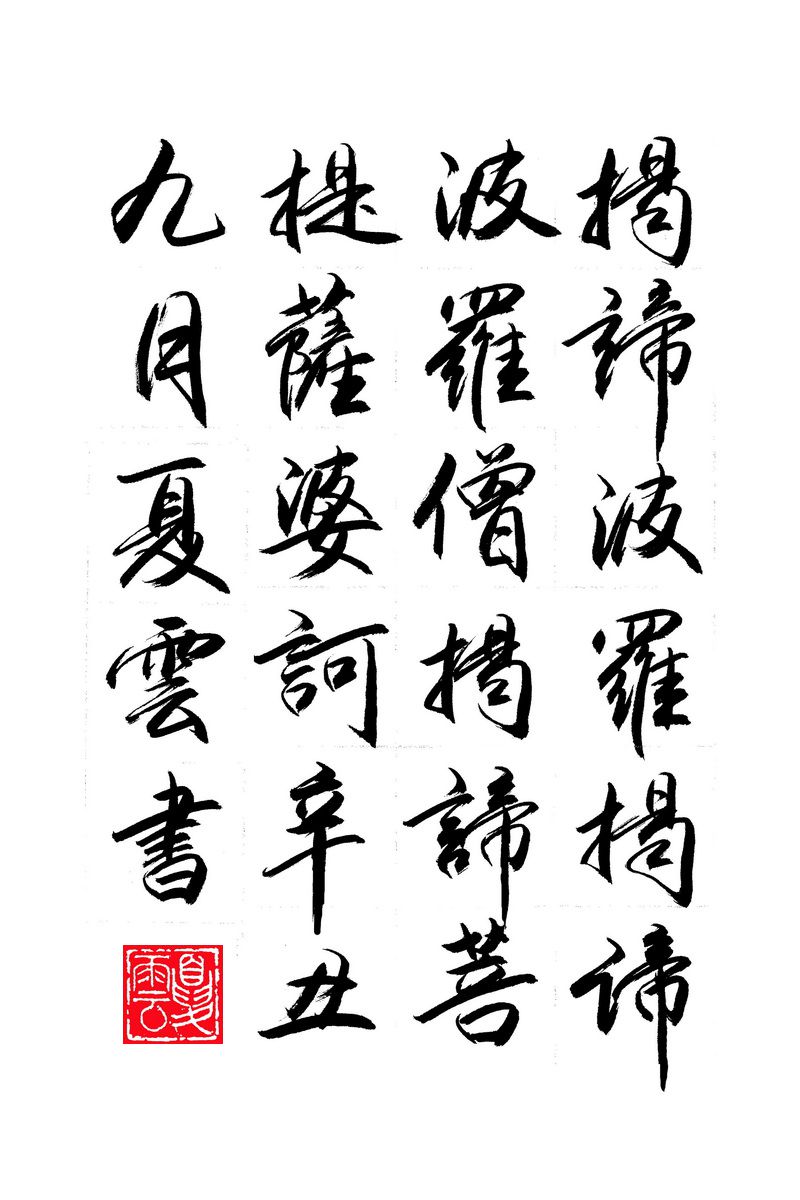 揭諦波羅揭諦
波羅僧揭諦菩
提薩婆訶辛丑
九月夏雲書
夏雲